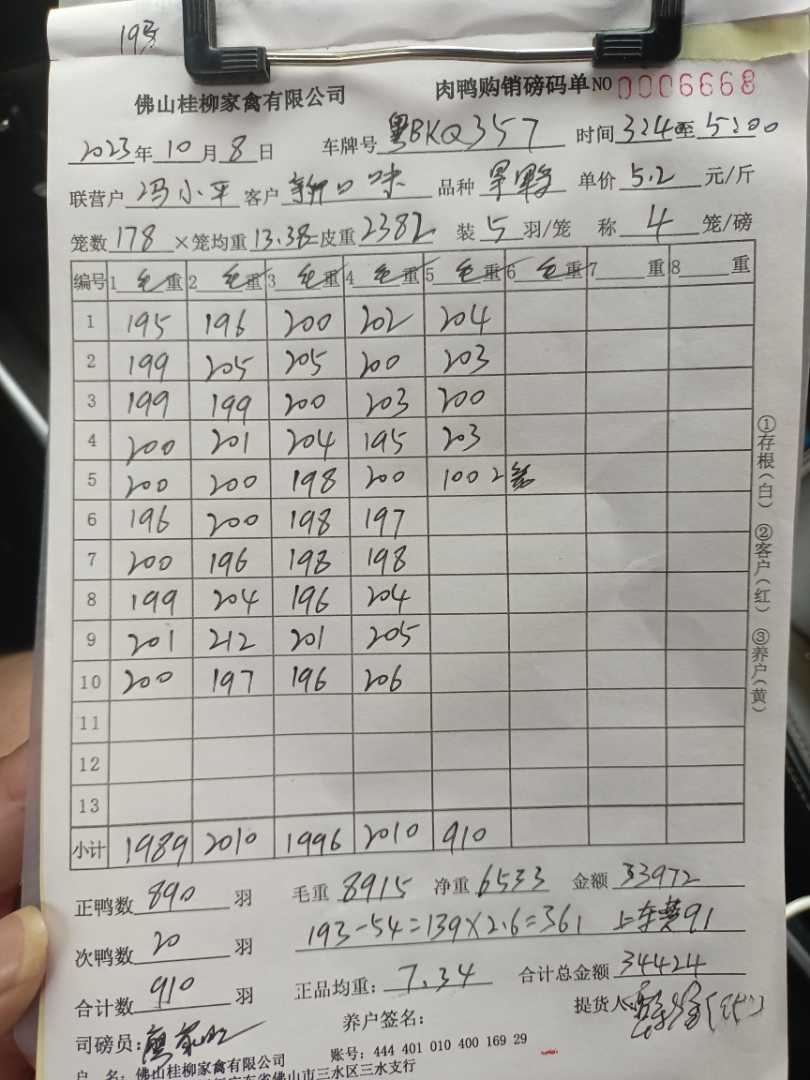 19号
佛山桂柳家禽有限公司 肉鸭购销磅码单 NO 0006668
2023年10月8日 车牌号 粤BKQ357 时间 3:24至5:00
联营户 冯小平 客户 新口味 品种 单价 5.2 元/斤
笼数 178 ×笼均重 13.38=皮重 2382 装 5 羽/笼 称 4 笼/磅
编号 1 毛重 2 毛重 3 毛重 4 毛重 5 毛重 6 毛重 7 重 8 重
1 195 196 200 202 204
2 199 205 205 200 203
3 199 199 200 203 200
4 200 201 204 195 203
5 200 200 198 200 100 2笼
6 196 200 198 197
7 200 196 198 198
8 199 204 196 204
9 201 212 201 205
10 200 197 196 206
11
12
13
小计 1989 2010 1996 2010 910
①存根(白) ②客户(红) ③养户(黄)
正鸭数 890 羽 毛重 8915 净重 6533 金额 33972
次鸭数 20 羽 193-54=139×2.6=361 上车费91
合计数 910 羽 正品均重: 7.34 合计总金额 34424
司磅员: 养户签名: 提货人
户 名: 佛山桂柳家禽有限公司 账号: 444 401 010 400 169 29
省佛山市三水区三水支行